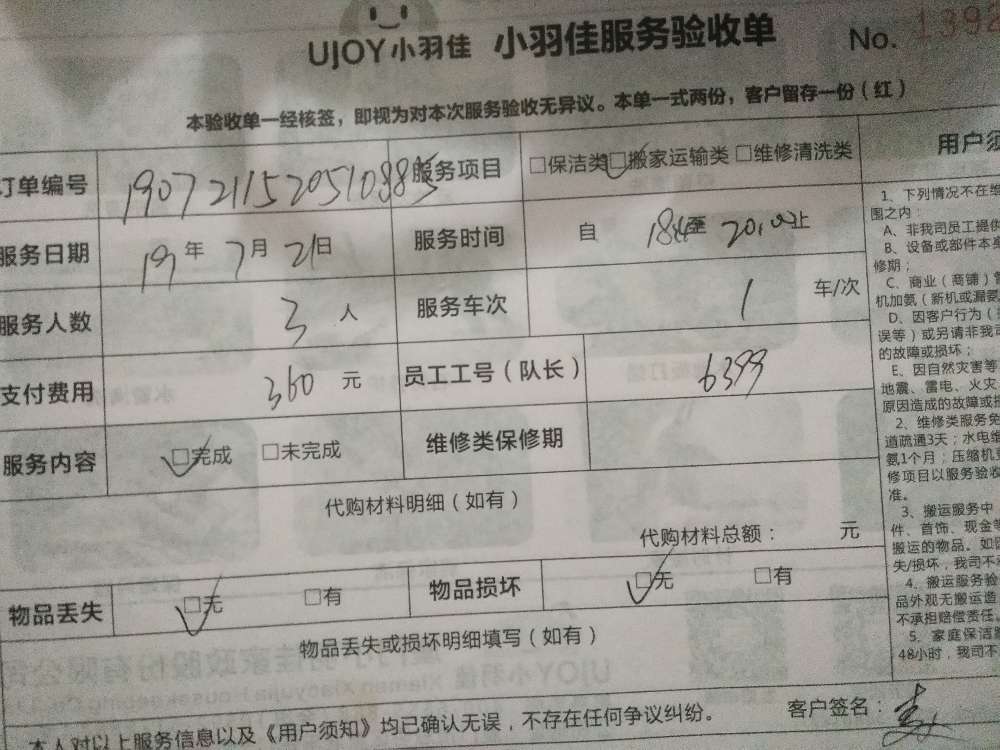 UJOY小羽佳 小羽佳服务验收单 No. 1392
本验收单一经核签，即视为对本次服务验收无异议。本单一式两份，客户留存一份（红）
订单编号 190721152051088 服务项目 □保洁类 □搬家运输类 □维修清洗类
服务日期 19年7月21日 服务时间 自 至 20:00止
服务人数 3人 服务车次 1 车/次
支付费用 360元 员工工号（队长） 6399
服务内容 □完成 □未完成 维修类保修期
代购材料明细（如有）
代购材料总额： 元
物品丢失 □无 □有 物品损坏 □无 □有
物品丢失或损坏明细填写（如有）
本人对以上服务信息以及《用户须知》均已确认无误，不存在任何争议纠纷。 客户签名：
用户须
1、下列情况不在维
围之内：
A、非我司员工提供
B、设备或部件本身
修期；
C、商业（商铺）
机加氨（新机或漏氨
D、因客户行为（
误等）或另请非我司
的故障或损坏；
E、因自然灾害等
地震、雷电、火灾
原因造成的故障或损
2、维修类服务免
道疏通3天；水电维
氨1个月；压缩机
修项目以服务验收
准。
3、搬运服务中
件、首饰、现金等
搬运的物品。如
失/损坏，我司不
4、搬运服务验
品外观无搬运造
不承担赔偿责任。
5、家庭保洁
48小时，我司不